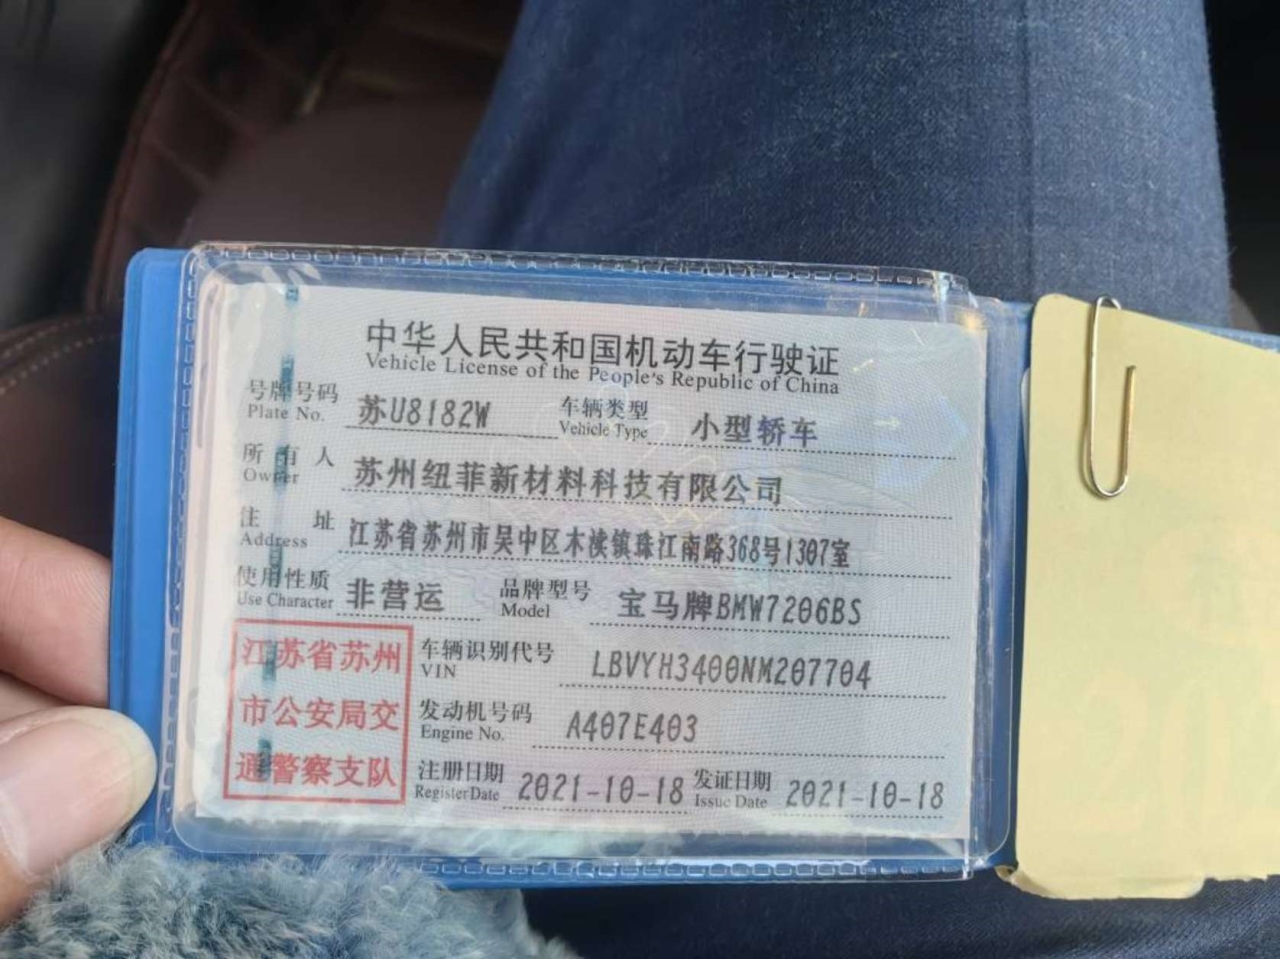 中华人民共和国机动车行驶证
Vehicle License of the People's Republic of China
号牌号码 苏U8182W 车辆类型 小型轿车
Plate No. Vehicle Type
所有人 苏州纽菲新材料科技有限公司
Owner
住址 江苏省苏州市吴中区木渎镇珠江南路368号1307室
Address
使用性质 非营运 品牌型号 宝马牌BMW7206BS
Use Character Model
江苏省苏州
市公安局交
通警察支队
车辆识别代号 LBVYH3400NM207704
VIN
发动机号码 A407E403
Engine No.
注册日期 2021-10-18 发证日期 2021-10-18
Register Date Issue Date